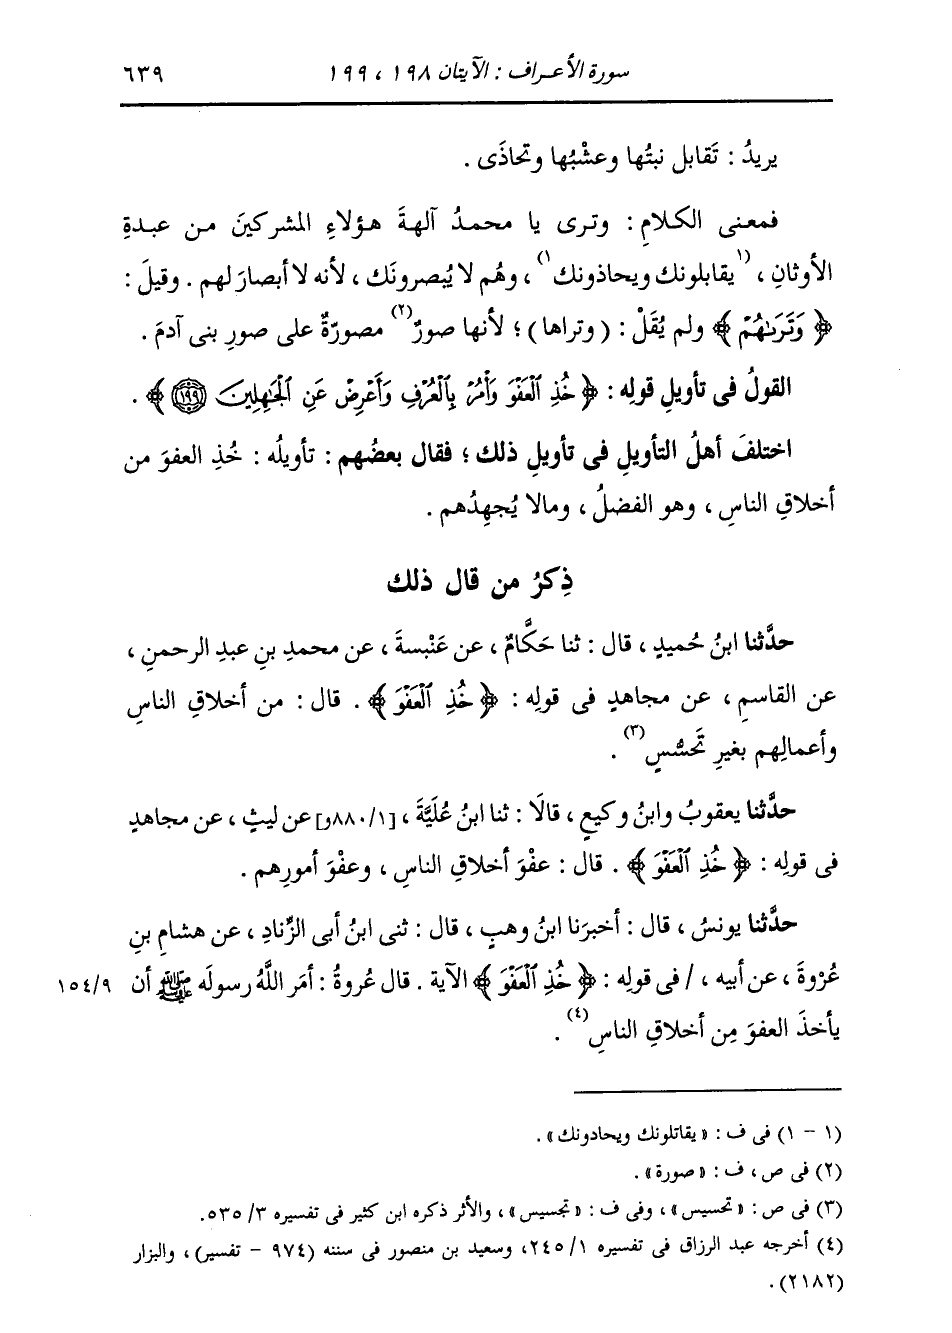 سورة الأعراف : الآيتان ١٩٨ ، ١٩٩ ٦٣٩
يريدُ : تَقابل نبتُها وعشْبُها وتحاذَى .
فمعنى الكلامِ : وترى يا محمدُ آلهةَ هؤلاءِ المشركينَ من عبدةِ
الأوثانِ ، (١يقابلونك ويحاذونك١) ، وهُم لا يُبصرونَك ، لأنه لا أبصارَ لهم . وقيلَ :
﴿ وَتَرَىٰهُمْ ﴾ ولم يُقَلْ : ( وتراها ) ؛ لأنها صورٌ(٢) مصورّةٌ على صورِ بنى آدمَ .
القولُ فى تأويلِ قولِه : ﴿ خُذِ ٱلْعَفْوَ وَأْمُرْ بِٱلْعُرْفِ وَأَعْرِضْ عَنِ ٱلْجَٰهِلِينَ ١٩٩ ﴾ .
اختلفَ أهلُ التأويلِ فى تأويلِ ذلك ؛ فقال بعضُهم : تأويلُه : خُذِ العفوَ من
أخلاقِ الناسِ ، وهو الفضلُ ، ومالا يُجهِدُهم .
ذِكرُ من قال ذلك
حدَّثنا ابنُ حُميدٍ ، قال : ثنا حَكَّامٌ ، عن عَنْبسةَ ، عن محمدِ بنِ عبدِ الرحمنِ ،
عن القاسمِ ، عن مجاهدٍ فى قولِه : ﴿ خُذِ ٱلْعَفْوَ ﴾ . قال : من أخلاقِ الناسِ
وأعمالِهم بغيرِ تَحسُّسٍ(٣) .
حدَّثنا يعقوبُ وابنُ وكيعٍ ، قالَا : ثنا ابنُ عُلَيَّةَ ، [٨٨٠/١و] عن ليثٍ ، عن مجاهدٍ
فى قولِه : ﴿ خُذِ ٱلْعَفْوَ ﴾ . قال : عفْوَ أخلاقِ الناسِ ، وعفْوَ أمورِهم .
حدَّثنا يونسُ ، قال : أخبرَنا ابنُ وهبٍ ، قال : ثنى ابنُ أبى الزِّنادِ ، عن هشامِ بنِ
عُرْوةَ ، عن أبيه ، / فى قولِه : ﴿ خُذِ ٱلْعَفْوَ ﴾ الآية . قال عُروةُ : أمَر اللَّهُ رسولَه ﷺ أن ١٥٤/٩
يأخذَ العفوَ مِن أخلاقِ الناسِ(٤) .
(١ - ١) فى ف : « يقاتلونك ويحادونك » .
(٢) فى ص ، ف : « صورة » .
(٣) فى ص : « تحسيس » ، وفى ف : « تجسيس » ، والأثر ذكره ابن كثير فى تفسيره ٣/ ٥٣٥.
(٤) أخرجه عبد الرزاق فى تفسيره ١/ ٢٤٥، وسعيد بن منصور فى سننه (٩٧٤ - تفسير) ، والبزار
(٢١٨٢) .